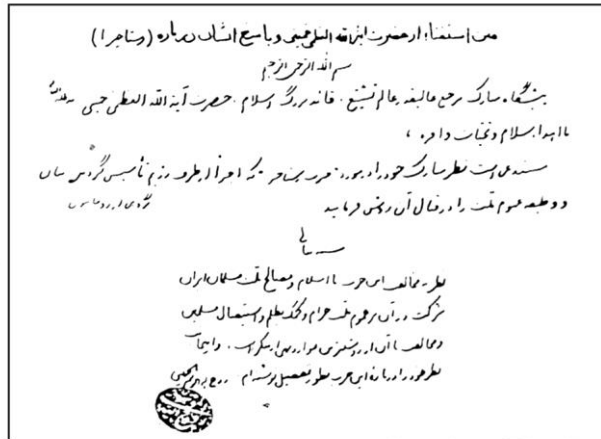 متن استفتاء از حضرت آیة الله العظمی خمینی و پاسخ ایشان درباره (رستاخیز)
بسم الله الرحمن الرحیم
پیشگاه مبارک مرجع عالیقدر عالم تشیع، قائد بزرگ اسلام، حضرت آیة الله العظمی خمینی
با اهداء سلام و تحیات وافره،
مستدعی است نظر مبارک خود را در مورد حزب رستاخیز که اخیراً از طرف رژیم تأسیس گردیده بیان
و وظیفه عموم ملت را در قبال آن روشن فرمایید
بسمه تعالی
نظر به مخالفت این حزب با اسلام و مصالح ملت مسلمان ایران
شرکت در آن بر عموم ملت حرام و کمک به ظلم و استیصال مسلمین
و مخالفت با آن از روشنترین موارد نهی از منکر است. و اینجانب
نظر خود را درباره این حزب بطور تفصیل نوشته‌ام روح الله الموسوی الخمینی